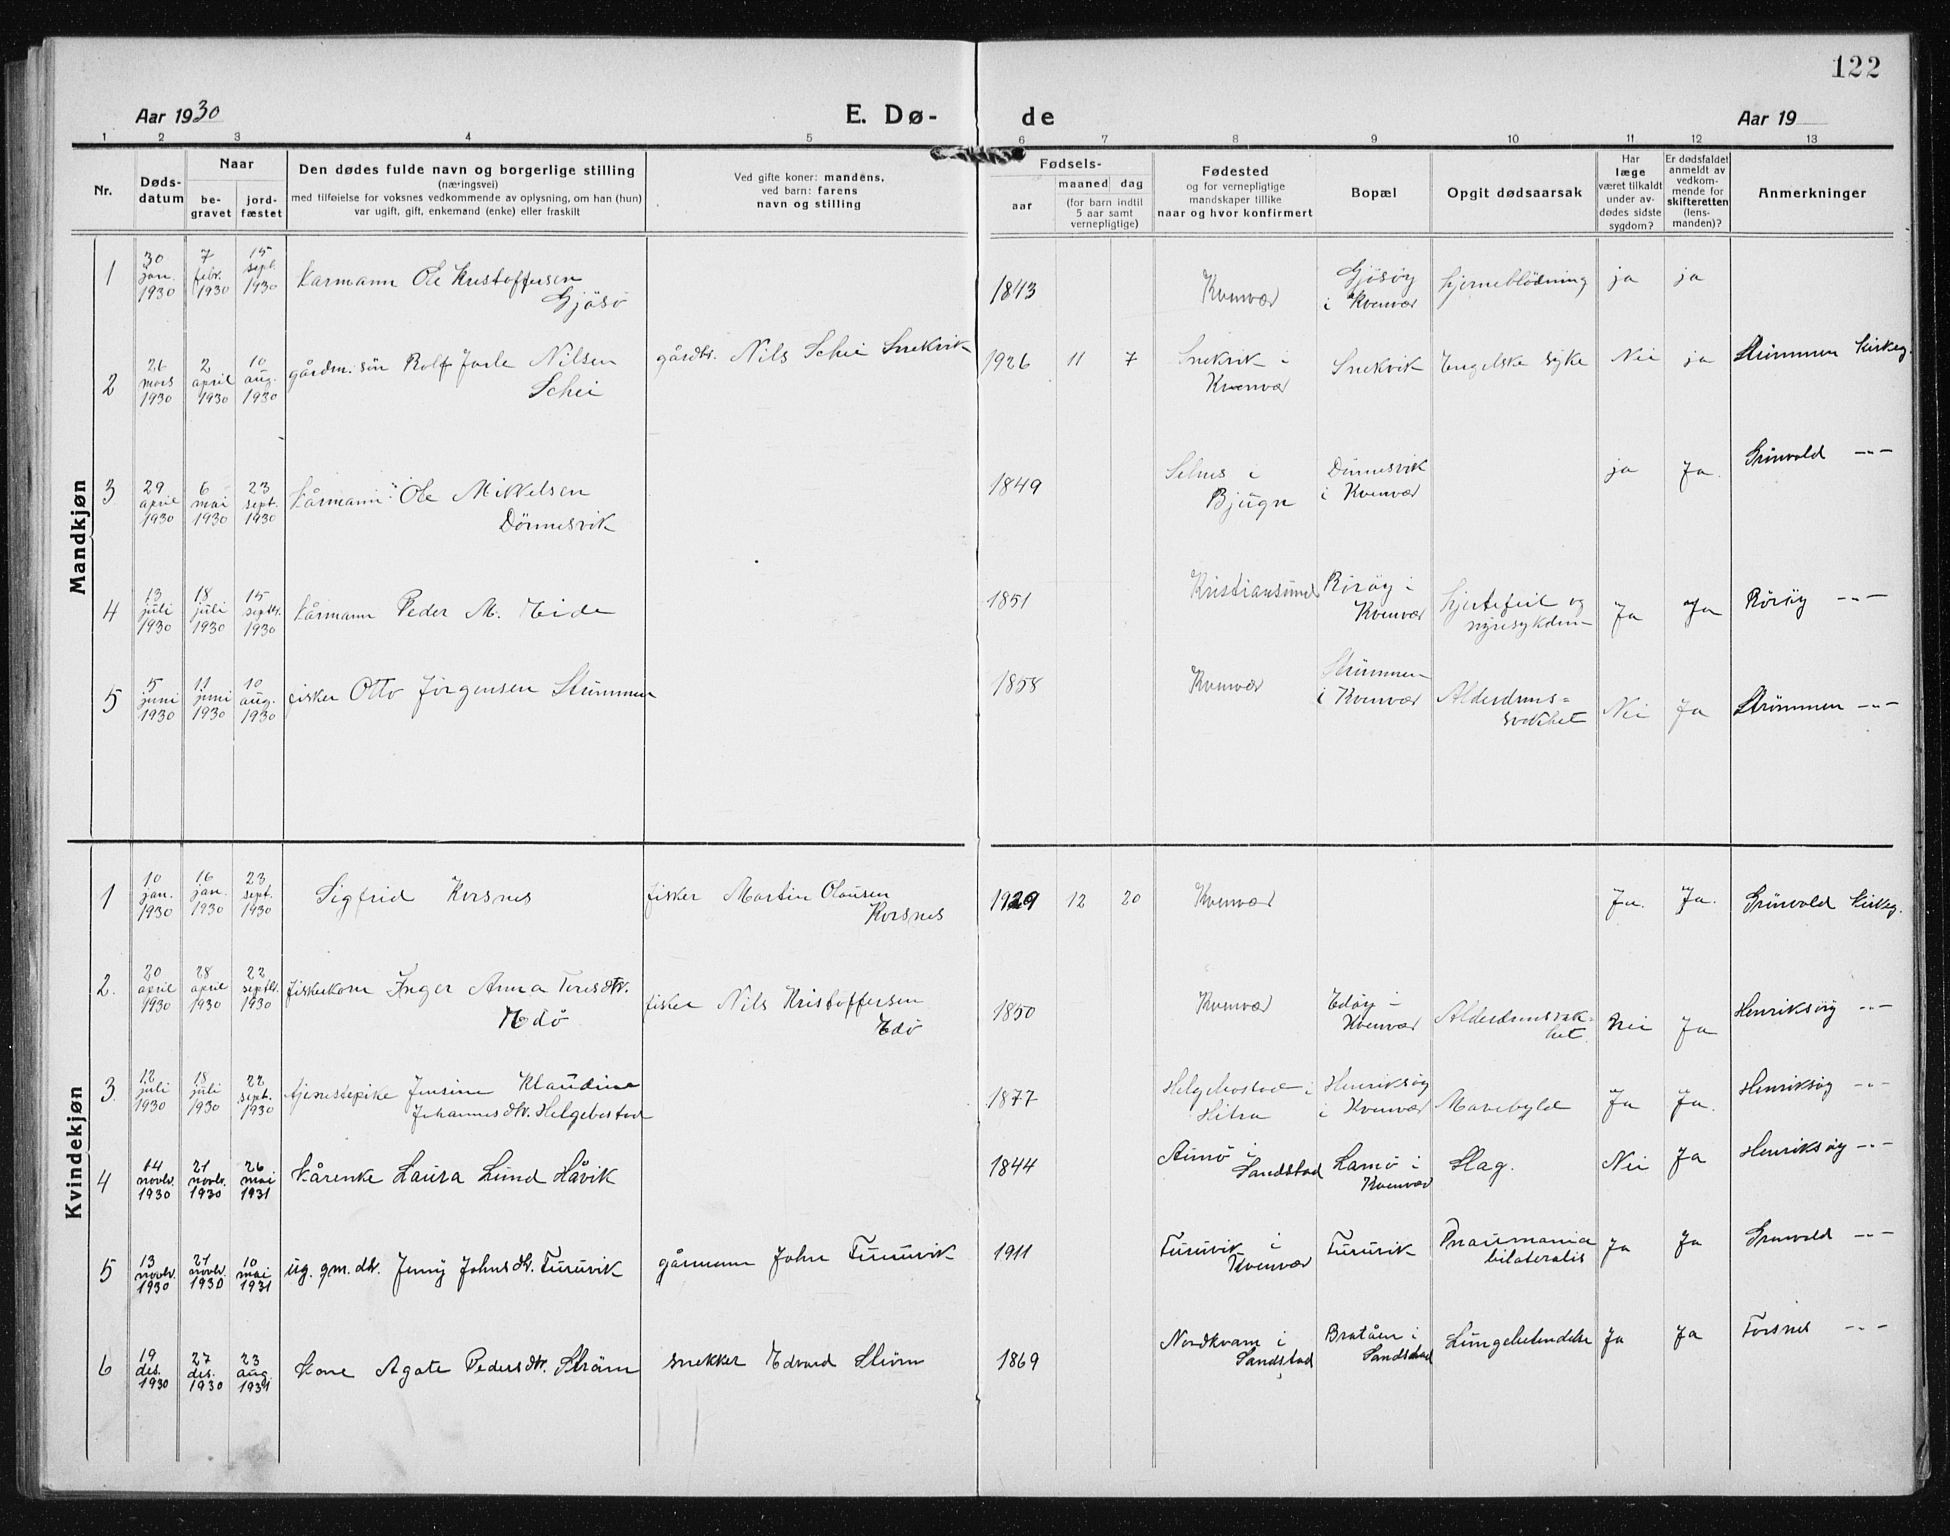 122
Aar 1930 E. Dø- de Aar 19
1 2 3 4 5 6 7 8 9 10 11 12 13
Nr.
Døds-
datum
Naar
be-
gravet
jord-
fæstet
Den dødes fulde navn og borgerlige stilling
(næringsvei)
med tilføielse for voksnes vedkommende av oplysning, om han (hun)
var ugift, gift, enkemand (enke) eller fraskilt
Ved gifte koner: mandens,
ved barn: farens
navn og stilling
Fødsels-
aar
maaned dag
(for barn indtil
5 aar samt
vernepligtige)
Fødested
og for vernepligtige
mandskaper tillike
naar og hvor konfirmert
Bopæl
Opgit dødsaarsak
Har
læge
været tilkaldt
under av-
dødes sidste
sygdom?
Er dødsfaldet
anmeldt av
vedkom-
mende for
skifteretten
(lens-
manden)?
Anmerkninger
Mandkjøn
1
30
jan.
1930
7
febr.
1930
15
sept.
1930
Karmann Ole Kristoffersen
Gjøsø
1843
Kvenvær
Gjøsøy
i Kvenvær
hjerneblödning
ja
ja
2
26
mars
1930
2
april
1930
10
aug.
1930
gårdm. sön Rolf Jarle Nilsen
Schei
gårdbr. Nils Schei Snekvik
1926 11 7
Snekvik i
Kvenvær
Snekvik
Engelske syke
Nei
ja
Strömmen Kirkeg.
3
29
april
1930
6
mai
1930
23
sept.
1930
Kårmann Ole Mikkelsen
Dönnesvik
1849
Selnes i
Bjugn
Dönnesvik
i Kvenvær
ja
Ja.
Grünvold -"-
4
13
juli
1930
18
juli
1930
15
septbr.
1930
Kårmann Peder M. Eide
1851
Kristiansund
Rörøy i
Kvenvær
hjertefeil og
nyresykdom
Ja
Ja
Rörøy -"-
5
5
juni
1930
11
juni
1930
10
aug.
1930
fisker Otto Jörgensen Strömmen
1858
Kvenvær
Strömmen
i Kvenvær
Alderdoms-
svakhet
Nei
Ja
Strömmen -"-
Kvindekjøn
1
10
jan.
1930
16
jan.
1930
23
sept.
1930
Sigfrid Korsnes
fisker Martin Olausen
Korsnes
1929 12 20
Kvenvær
Ja.
Ja.
Grünvold Kirkeg.
2.
20
april
1930
28
april
1930
22
septbr.
1930
fiskerkone Inger Anna Teresdtr.
Edø
fisker Nils Kristoffersen
Edø
1850
Kvenvær
Edøy i
Kvenvær
Alderdomssvak-
het
Nei
Ja
Henriksøy -"-
3.
12
juli
1930
18
juli
1930
22
sept.
1930
tjenestepike Jensine Klaudine
Johannesdtr. Helgebostad
1877
Helgebostad i
Hitra
Henriksøy
i Kvenvær
Mavebyld
Ja
Ja.
Henriksøy -"-
4
14
novbr.
1930
21
novbr.
1930
26
mai
1931
Kårenke Laura Lund Håvik
1844
Aunø i
Sandstad
Lamø i
Kvenvær
Slag.
Nei
Ja
Henriksøy -"-
5
13
novbr.
1930
21
novbr.
1930
10
mai
1931
ug. gm. dtr. Jenny Johnsdtr. Furuvik
gårmann John Furuvik
1911
Furuvik i
Kvenvær
Furuvik
Pnaumania
bilateralis
Ja
Ja
Grunvold -"-
6
19
des.
1930
27
des.
1930
23
aug.
1931
Kone Agate Pedersdtr. Ström
snekker Edvard Ström
1869
Nordkvam i
Sandstad
Bratåen i
Sandstad
Lungebetendelse
Ja
Ja
Forsnes -"-